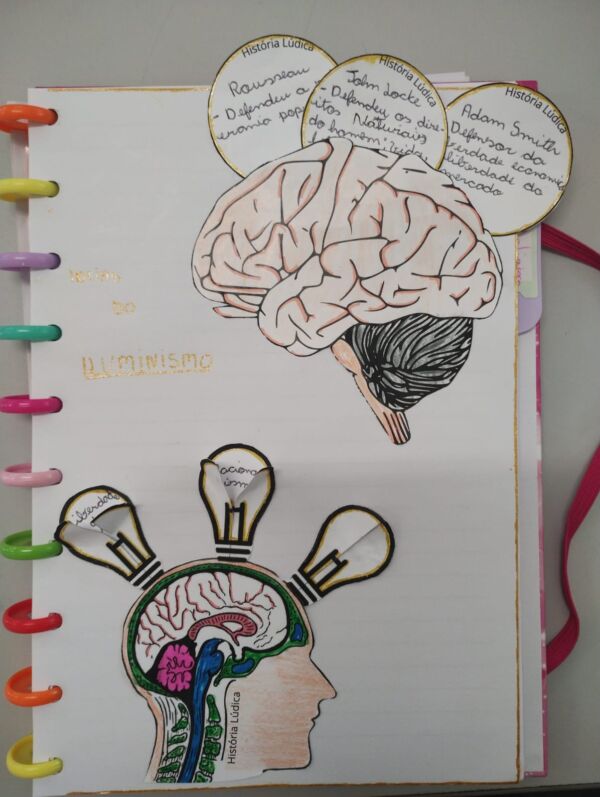 História Lúdica
Rousseau
- Defendeu a
História Lúdica
John Locke
- Defendeu os dire
itos Naturais
do homem
História Lúdica
Adam Smith
Defensor da
liberdade do
mercado
do
ILUMINISMO
aciona
ism
História Lúdica